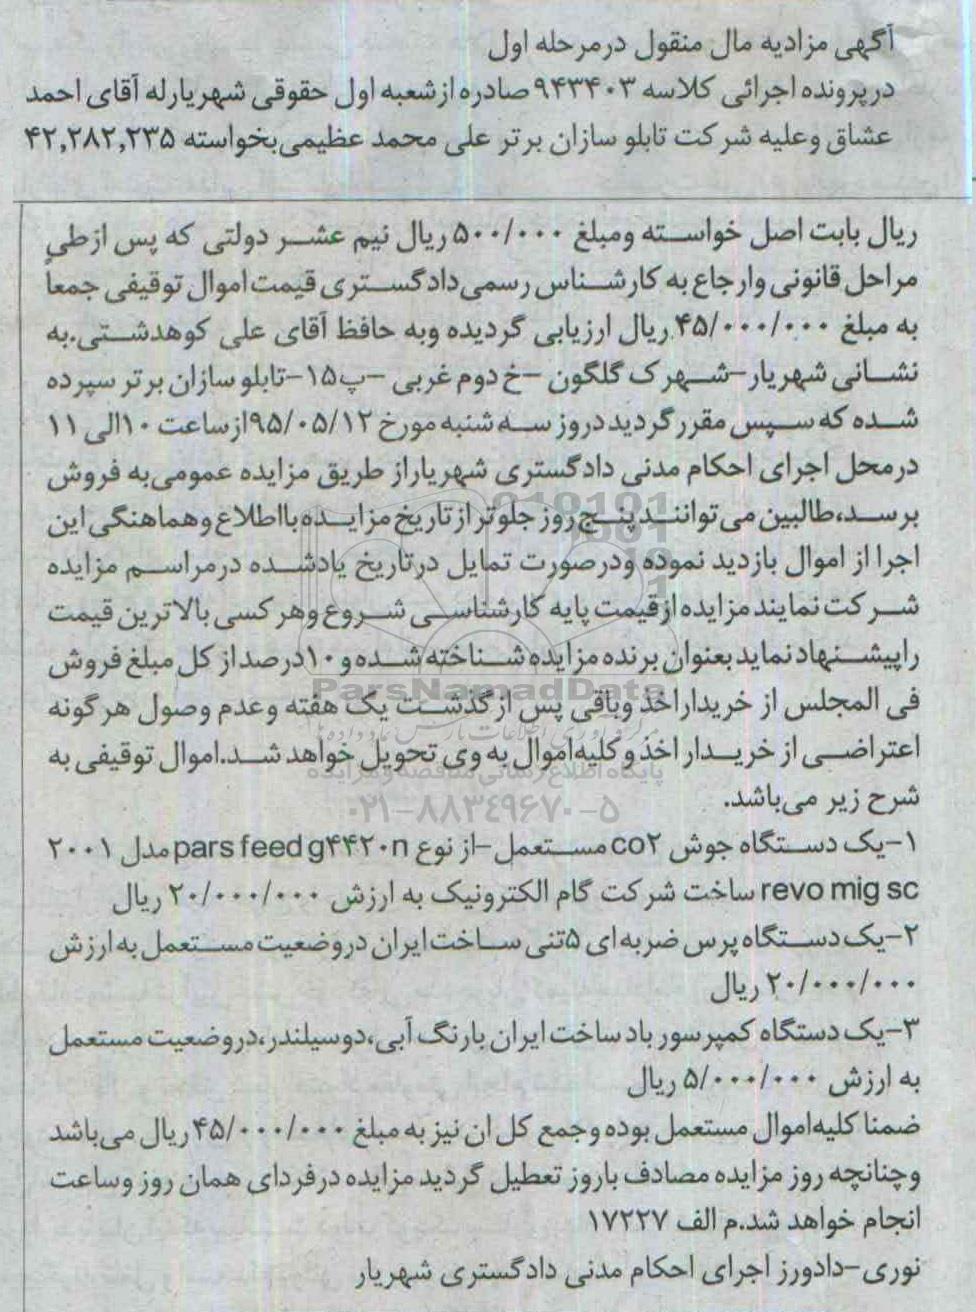 آگهی مزادیه مال منقول درمرحله اول
درپرونده اجرائی کلاسه ۹۴۳۴۰۳ صادره ازشعبه اول حقوقی شهریارله آقای احمد
عشاق وعلیه شرکت تابلو سازان برتر علی محمد عظیمی‌بخواسته ۴۲,۲۸۲,۲۳۵
ریال بابت اصل خواسته ومبلغ ۵۰۰/۰۰۰ ریال نیم عشر دولتی که پس ازطی
مراحل قانونی وارجاع به کارشناس رسمی‌دادگستری قیمت اموال توقیفی جمعاً
به مبلغ ۴۵/۰۰۰/۰۰۰ ریال ارزیابی گردیده وبه حافظ آقای علی کوهدشتی.به
نشانی شهریار-شهرک گلگون -خ دوم غربی -پ۱۵-تابلو سازان برتر سپرده
شده که سپس مقرر گردید دروز سه شنبه مورخ ۹۵/۰۵/۱۲ازساعت ۱۰الی ۱۱
درمحل اجرای احکام مدنی دادگستری شهریاراز طریق مزایده عمومی‌به فروش
برسد،طالبین می‌توانند پنج روز جلوتر از تاریخ مزایده بااطلاع وهماهنگی این
اجرا از اموال بازدید نموده ودرصورت تمایل درتاریخ یادشده درمراسم مزایده
شرکت نمایند مزایده ازقیمت پایه کارشناسی شروع وهر کسی بالاترین قیمت
راپیشنهاد نماید بعنوان برنده مزایده شناخته شده و ۱۰درصد از کل مبلغ فروش
فی المجلس از خریدار اخذ وباقی پس از گذشت یک هفته وعدم وصول هر گونه
اعتراضی از خریدار اخذ و کلیه‌اموال به وی تحویل خواهد شد.اموال توقیفی به
شرح زیر می‌باشد.
۱-یک دستگاه جوش co۲ مستعمل -از نوع pars feed g۴۴۲۰n مدل ۲۰۰۱
revo mig sc ساخت شرکت گام الکترونیک به ارزش ۲۰/۰۰۰/۰۰۰ ریال
۲-یک دستگاه پرس ضربه‌ای ۵تنی ساخت ایران دروضعیت مستعمل به ارزش
۲۰/۰۰۰/۰۰۰ ریال
۳-یک دستگاه کمپرسور باد ساخت ایران بارنگ آبی،دوسیلندر،دروضعیت مستعمل
به ارزش ۵/۰۰۰/۰۰۰ ریال
ضمنا کلیه‌اموال مستعمل بوده وجمع کل ان نیز به مبلغ ۴۵/۰۰۰/۰۰۰ ریال می‌باشد
وچنانچه روز مزایده مصادف باروز تعطیل گردید مزایده درفردای همان روز وساعت
انجام خواهد شد.م الف ۱۷۲۲۷
نوری-دادورز اجرای احکام مدنی دادگستری شهریار
ParsNamadData
پایگاه اطلاع رسانی مناقصه و مزایده
۰۲۱-۸۸۳۴۹۶۷۰-۵